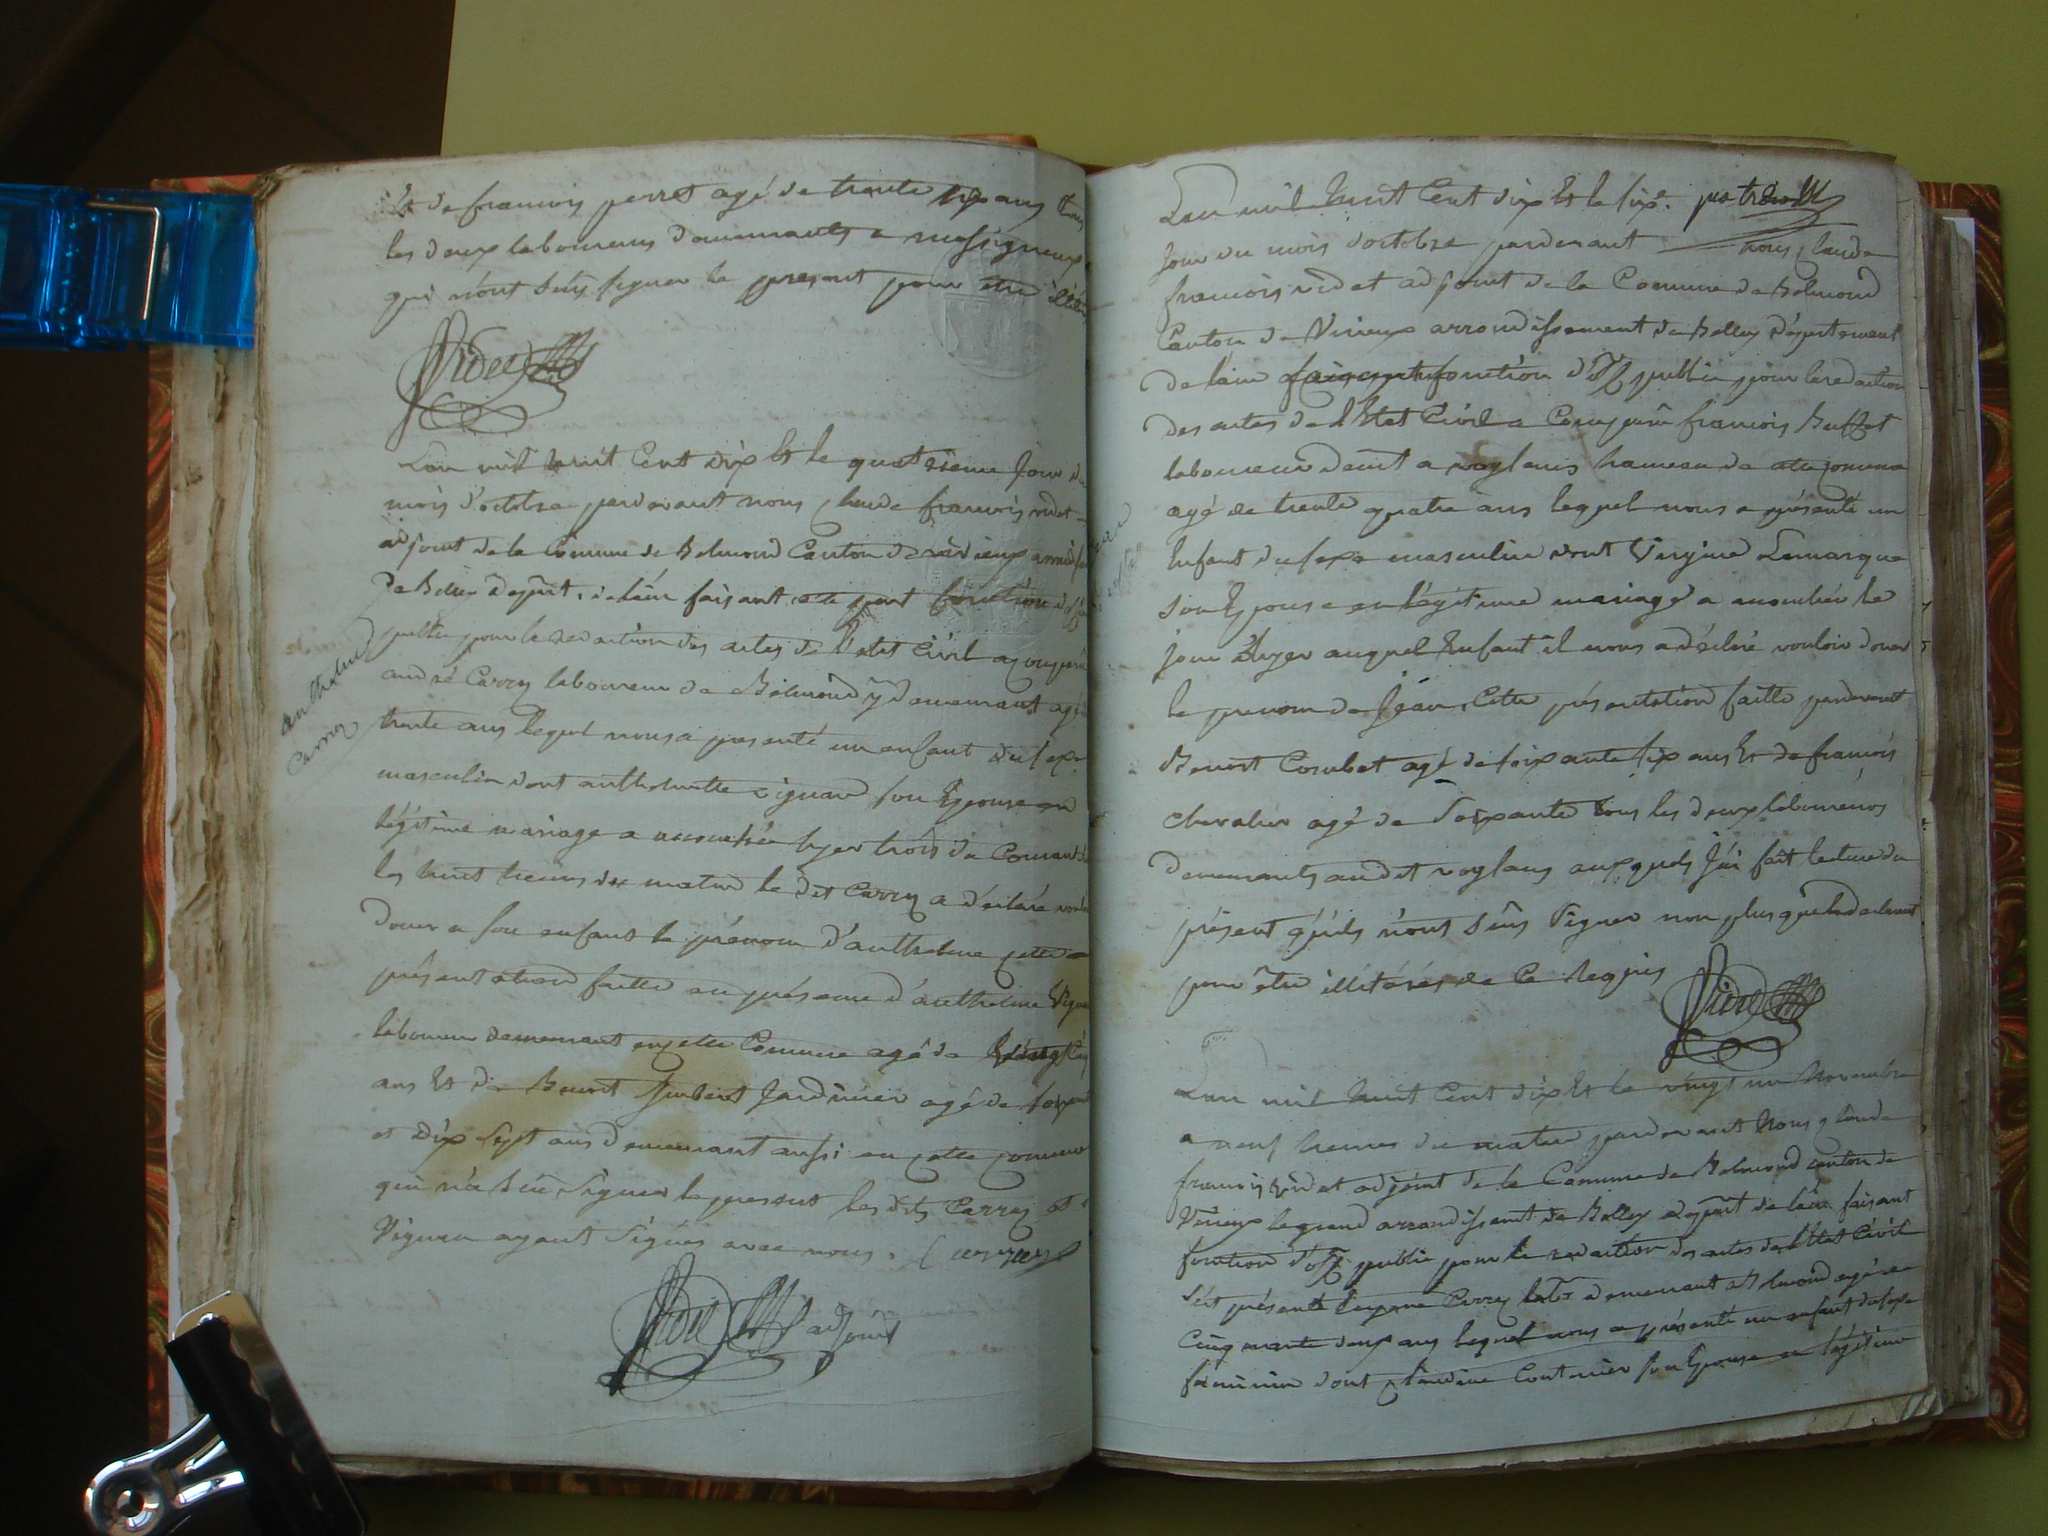 Et de francois perret agé de trente six ans tous
les deux laboureurs demeurants a
qui n'ont seus signer le present pour etre
Videt
Lan mil huit Cent dix Et le quatrieme Jour du
mois d'octobre pardevant nous Claude francois videt
adjoint de la Commune de Belmond Canton de
de Belley depart. de lain faisant fonction
public pour la redaction des actes de l'etat Civil a comparu
andré Carrey laboureur de Belmond y demeurant agé
trente ans lequel nous a presenté un enfant du sexe
masculin dont anthelmette vignau son Epouse en
légitime mariage a accouchée hyer trois du Courant
les huit heures du matin le dit Carrey a déclaré
doner a son enfant le prénom d'anthelme cette
présentation faitte en présence d'anthelme
laboureur demeurant en cette Commune agé de
ans Et de Benoit Jardinier agé de
et Dix Sept ans demeurant aussi en cette commune
qui n'a seu signer le present les dits Carrey et
Vignau ayant signés avec nous. Carrey
Videt adjoint
anthelme
Carrey
Lan mil huit Cent dix Et le six.
Jour du mois d'octobre pardevant nous Claude
francois videt adjoint de la Commune de Belmond
Canton de Virieux arrondissement de Belley département
de lain faisant fonction d'off. public pour la redaction
des actes de l'Etat Civil a Comparu francois Buffet
laboureur demt a hameau de
agé de trente quatre ans lequel nous a présenté un
Enfant du sexe masculin dont
Son Epouse en légitime mariage a accouchée le
jour d'hyer auquel Enfant il nous a déclaré vouloir doner
le prenom de Jean, Cette présentation faitte pardevant
Benoit Combet agé de soixante six ans Et de francois
chevalier agé de Soixante tous les deux laboureurs
demeurants audit auxquels J'ai fait lecture du
présent qu'ils n'ont seus signer non plus que le declarant
pour être illitérés de Ce Requis
Videt
Lan mil huit Cent dix Et le vingt un Novembre
a neuf heures du matin pardevant Nous Claude
francois videt adjoint de la Commune de Belmond canton de
Virieux le grand arrondissement de Belley depart de lain faisant
fonction d'off. public pour la redaction des actes de l'Etat Civil
s'est présenté Carrey demeurant a Belmond agé de
Cinquante deux ans lequel nous a présenté un enfant du sexe
féminin dont Claudine son Epouse en légitime